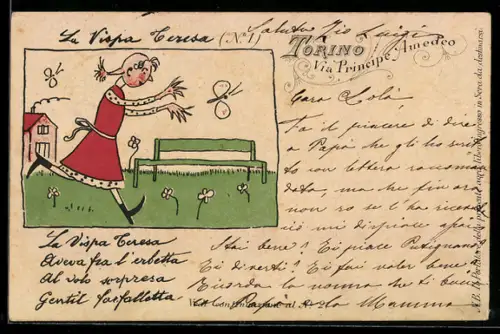 La Vispa Teresa (N. 1)
Saluta Zio Luigi
TORINO
Via Principe Amedeo
Cara Lola
Fa il piacere di dire
a Papà che gli ho scrit
to con lettera raccoman
data, ma che fin ora
non so se l'ha ricevu
ciò mi dispiace
Stai bene? Ti piace Putignano
Ti diverti? Ti fai voler bene
Ricorda la nonna che ti
Papà la Mamma
La Vispa Teresa
Aveva fra l'erbetta
Al volo sorpresa
Gentil farfalletta